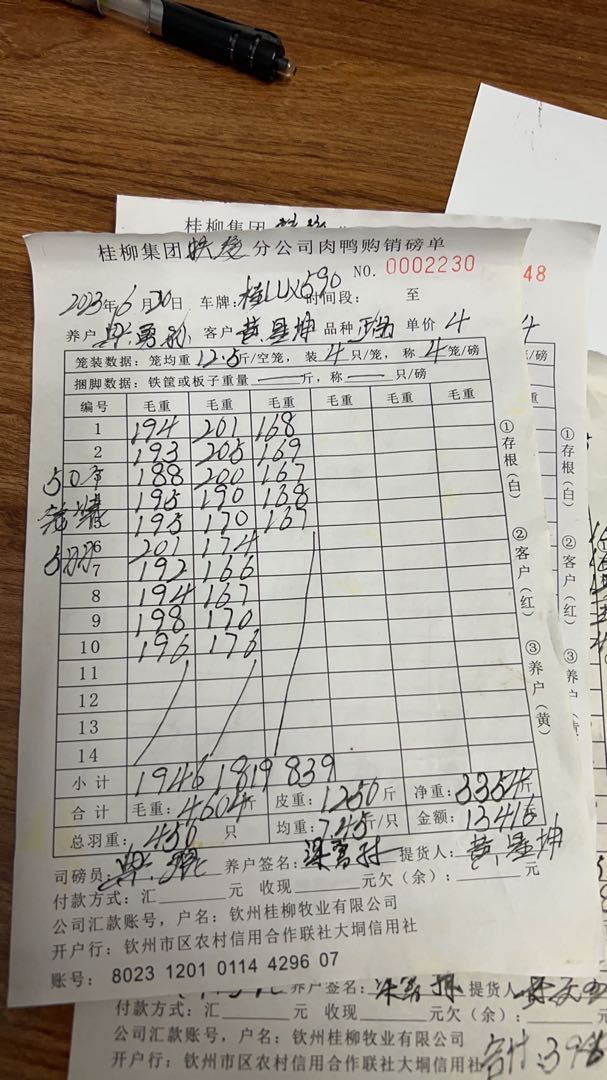 桂柳集团
48
桂柳集团钦凌分公司肉鸭购销磅单
NO. 0002230
2023年6月30日 车牌:桂LUX590 时间段: 至
养户 客户 黄显坤 品种 单价 4
笼装数据: 笼均重12.5斤/空笼, 装4只/笼, 称4笼/磅
捆脚数据: 铁筐或板子重量——斤, 称——只/磅
编号 毛重 毛重 毛重 毛重 毛重 毛重
1 194 201 168
2 193 205 169
188 200 167
195 190 168
195 170 167
6 201 174
7 192 166
8 194 167
9 198 170
10 196 176
11
12
13
14
小计 1946 1819 839
合计 毛重:4604斤 皮重:1250斤 净重:3354斤
总羽重:450只 均重:7.45斤/只 金额:13416元
司磅员: 养户签名: 提货人:黄显坤
付款方式:汇____元 收现____元欠(余):____元
公司汇款账号,户名:钦州桂柳牧业有限公司
开户行:钦州市区农村信用合作联社大垌信用社
账号: 8023 1201 0114 4296 07
①存根(白) ②客户(红) ③养户(黄)
①存根(白) ②客户(红) ③养户
养户签名: 提货人
付款方式:汇____元 收现____元欠(余):
公司汇款账号,户名:钦州桂柳牧业有限公司
开户行:钦州市区农村信用合作联社大垌信用社
合计:398